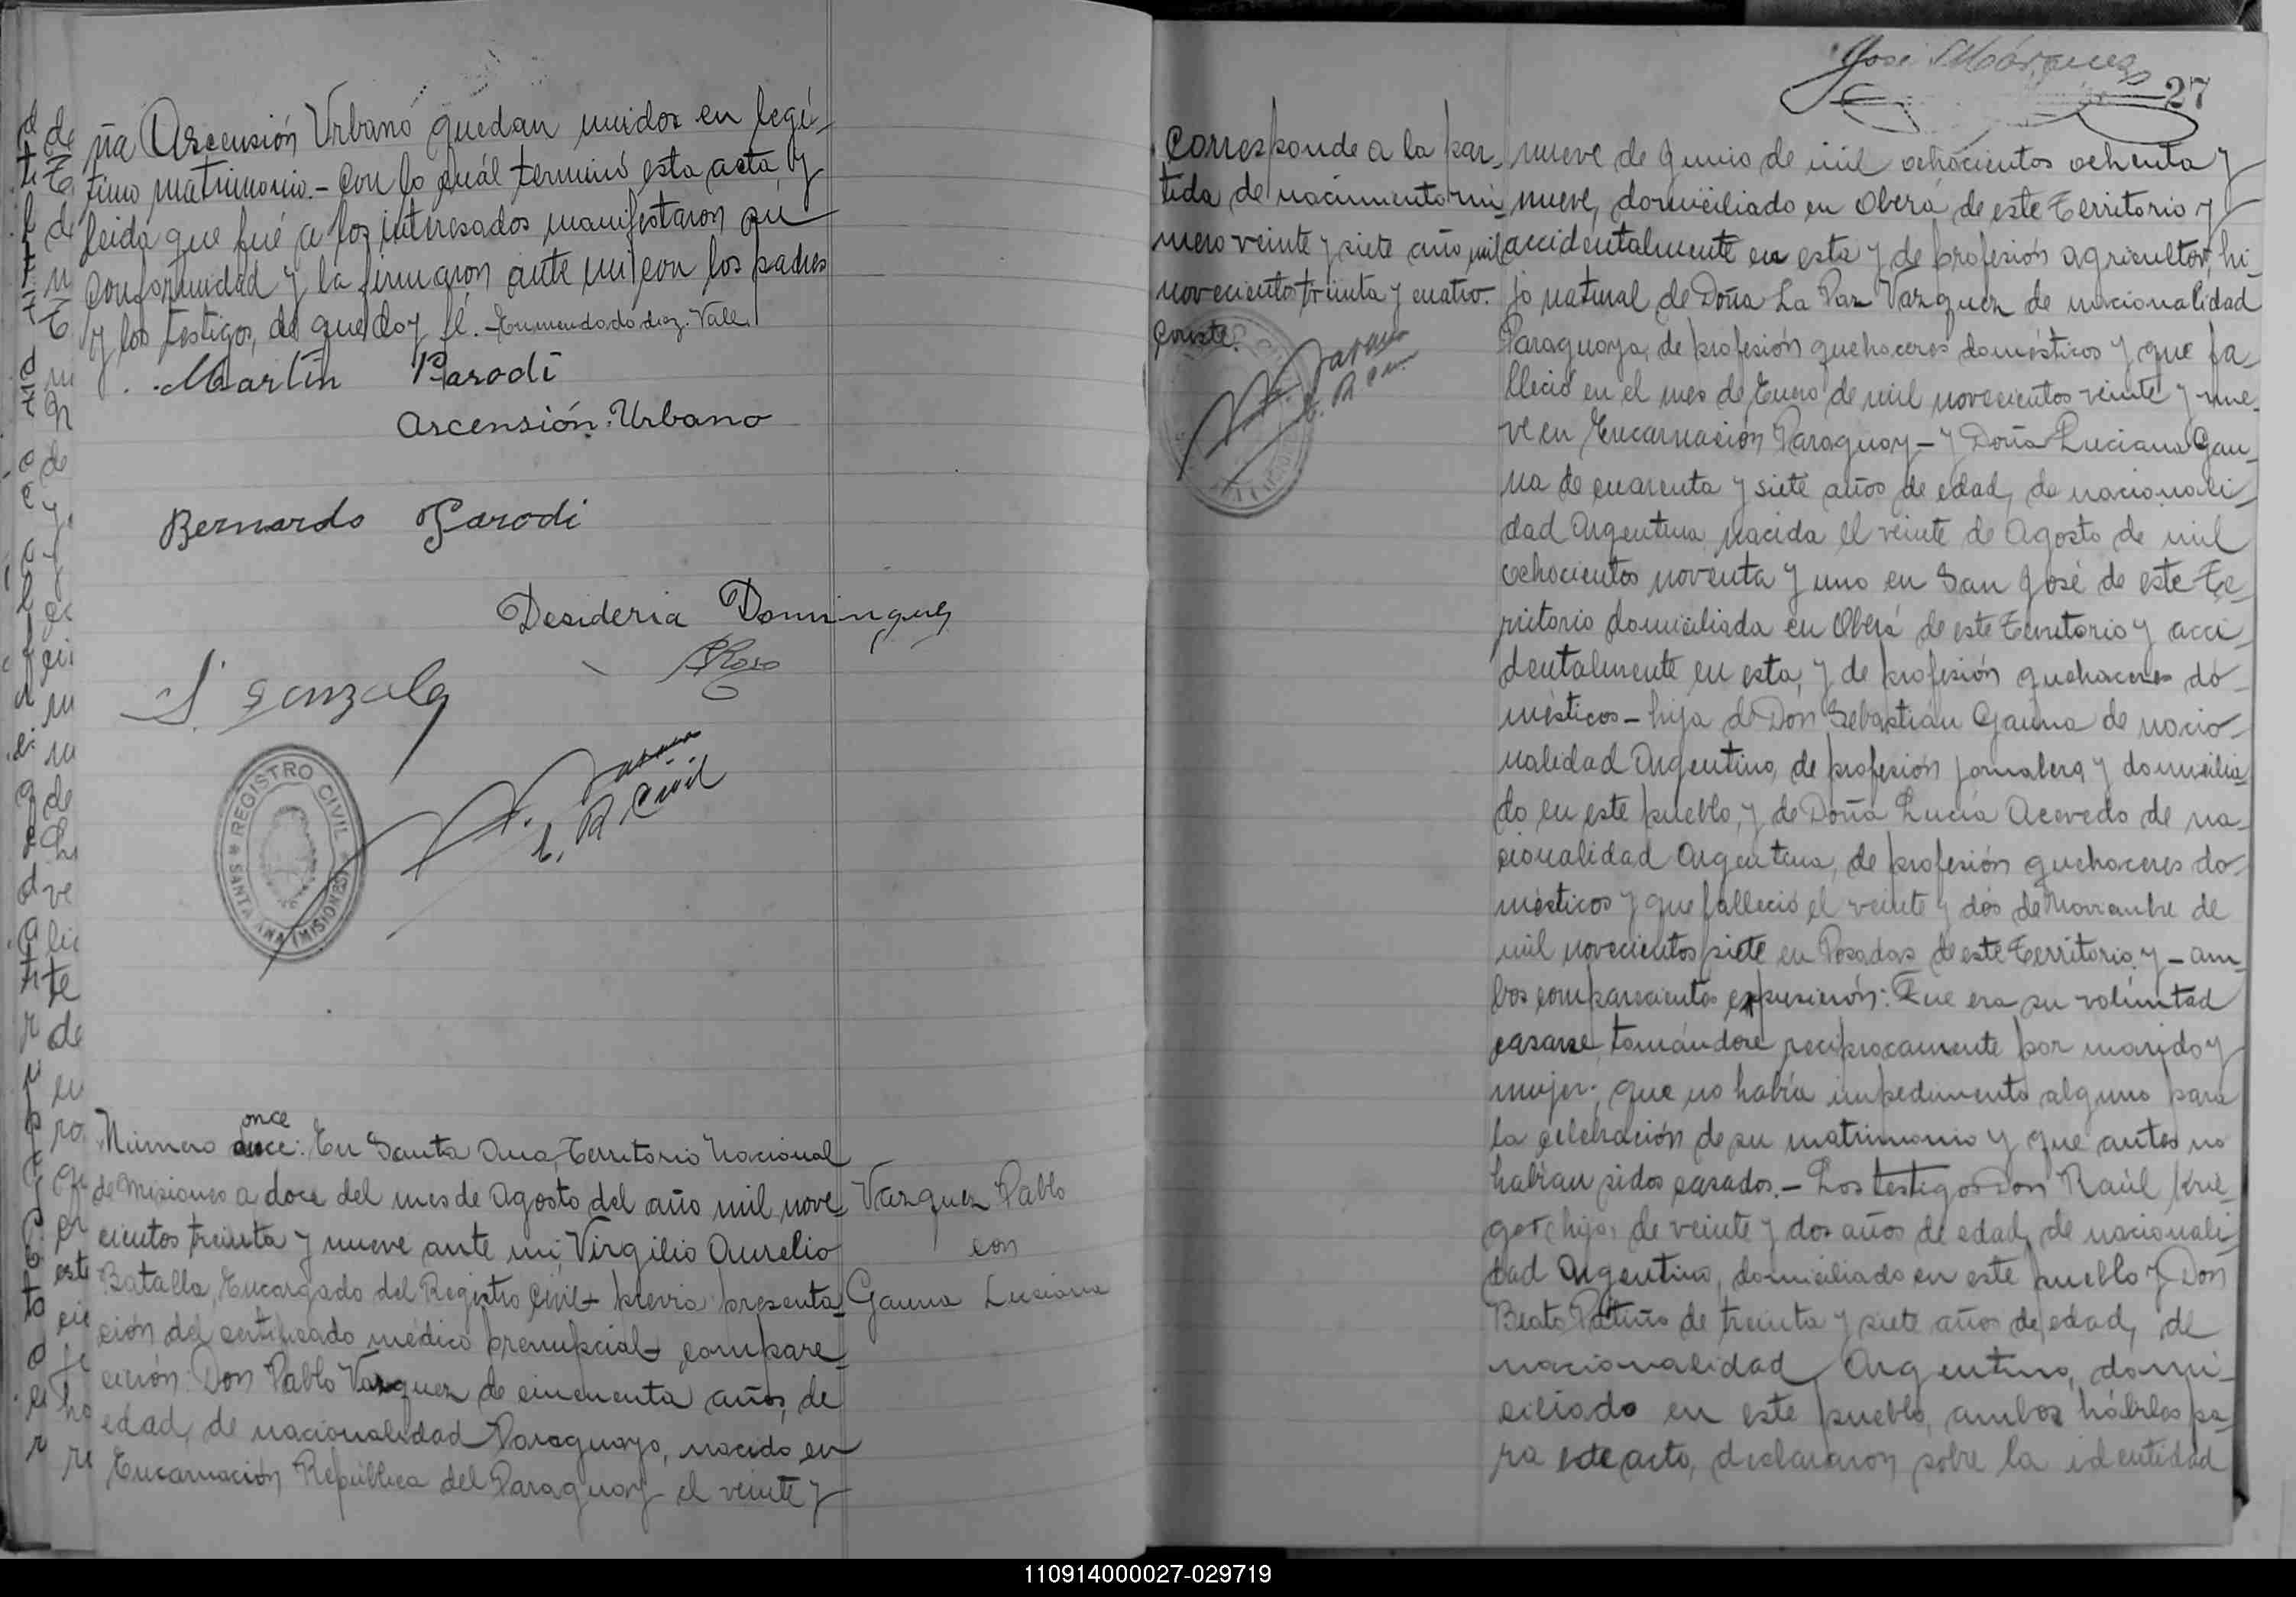 ña Ascensión Urbano quedan unidos en legí-
timo matrimonio.- Con lo cuál terminó esta acta y
leida que fué a los interesados manifestaron su
conformidad y la firmaron ante mi con los padres
y los testigos, de que doy fé. - Enmendado diez. Vale.
Martín Parodi
Ascensión Urbano
Bernardo Parodi
Desideria Domingues
S. Gonzalez
E. R. Civil
REGISTRO CIVIL
SANTA ANA (MISIONES)
once
Número once: En Santa Ana, Territorio Nacional
de Misiones a doce del mes de Agosto del año mil nove-
cientos treinta y nueve ante mi, Virgilio Aurelio
Batalla, Encargado del Registro Civil - previa presenta-
ción del certificado médico prenupcial - compare-
cieron: Don Pablo Vazquez de cincuenta años, de
edad, de nacionalidad Paraguayo, nacido en
Encarnación República del Paraguay el veinte y
Vazquez Pablo
con
Gauna Luciana
José Márquez
27
Corresponde a la par-
tida de nacimiento nú-
mero veinte y siete año mil
novecientos treinta y cuatro.
Conste.
nueve de Junio de mil ochocientos ochenta y
nueve, domiciliado en Oberá de este Territorio y
accidentalmente en esta y de profesión agricultor, hi-
jo natural de Doña La Paz Vazquez de nacionalidad
Paraguaya, de profesión quehaceres domésticos y que fa-
lleció en el mes de Enero de mil novecientos veinte y nue-
ve en Encarnación Paraguay - y Doña Luciana Gau-
na de cuarenta y siete años de edad, de nacionali-
dad Argentina nacida el veinte de Agosto de mil
ochocientos noventa y uno en San José de este Te-
rritorio domiciliada en Oberá de este Territorio y acci-
dentalmente en esta, y de profesión quehaceres do-
mésticos - hija de Don Sebastián Gauna de nacio-
nalidad Argentino, de profesión jornalero, y domicilia-
do en este pueblo, y de Doña Lucía Acevedo de na-
cionalidad Argentina, de profesión quehaceres do-
mésticos y que falleció el veinte y dos de Noviembre de
mil novecientos siete en Posadas de este Territorio, y - am-
bos comparecientes expusieron: Que era su voluntad
casarse tomándose recíprocamente por marido y
mujer; que no había impedimento alguno para
la celebración de su matrimonio y que antes no
habían sidos casados. - Los testigos Don Raúl Krie-
ger hijo, de veinte y dos años de edad, de nacionali-
dad Argentino, domiciliado en este pueblo y Don
Beato Patiño de treinta y siete años de edad, de
nacionalidad Argentino, domi-
ciliado en este pueblo, ambos hábiles pa-
ra este acto, declararon sobre la identidad
110914000027-029719